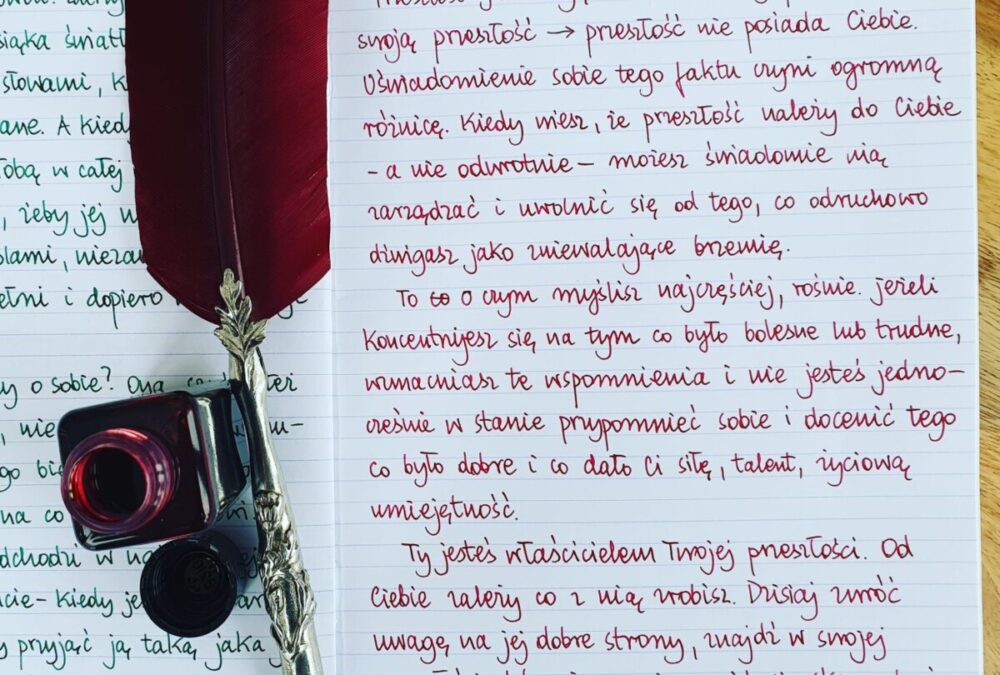 światł
słowami, K
ane. A kied
obą w całej
, żeby jej w
lami, nieza
ełni i dopiero
y o sobie? Ona
, nie
go
na co
dchodzi w
cie – kiedy je
y przyjąć ją taką, jaka j
swoją przeszłość → przeszłość nie posiada Ciebie.
Uświadomienie sobie tego faktu czyni ogromną
różnicę. Kiedy wiesz, że przeszłość należy do Ciebie
- a nie odwrotnie – możesz świadomie nią
zarządzać i uwolnić się od tego, co odruchowo
dźwigasz jako zniewalające brzemię.
To o czym myślisz najczęściej, rośnie. Jeżeli
koncentrujesz się na tym co było bolesne lub trudne,
wzmacniasz te wspomnienia i nie jesteś jedno-
cześnie w stanie przypomnieć sobie i docenić tego
co było dobre i co dało Ci siłę, talent, życiową
umiejętność.
Ty jesteś właścicielem Twojej przeszłości. Od
Ciebie zależy co z nią zrobisz. Dzisiaj zwróć
uwagę na jej dobre strony, znajdź w swojej